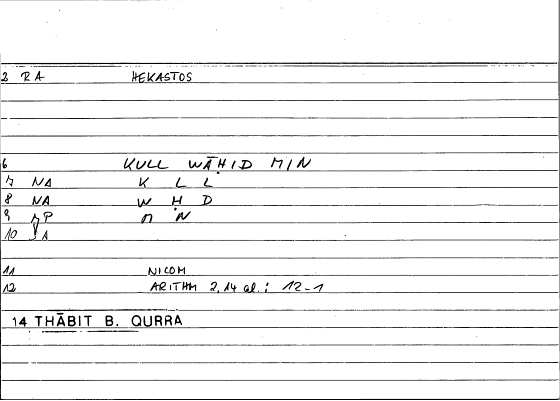 2 RA HEKASTOS
6 KULL WĀḤID MIN
7 NA K L L
8 NA W Ḥ D
9 AP M N
10 JA
11 NICOM
12 ARITHM 2,14 al.: 12-1
14 THĀBIT B. QURRA